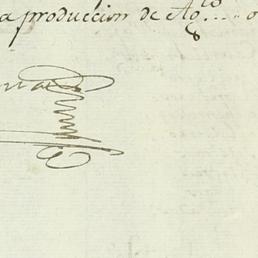 a produccion de Ag.to .... o